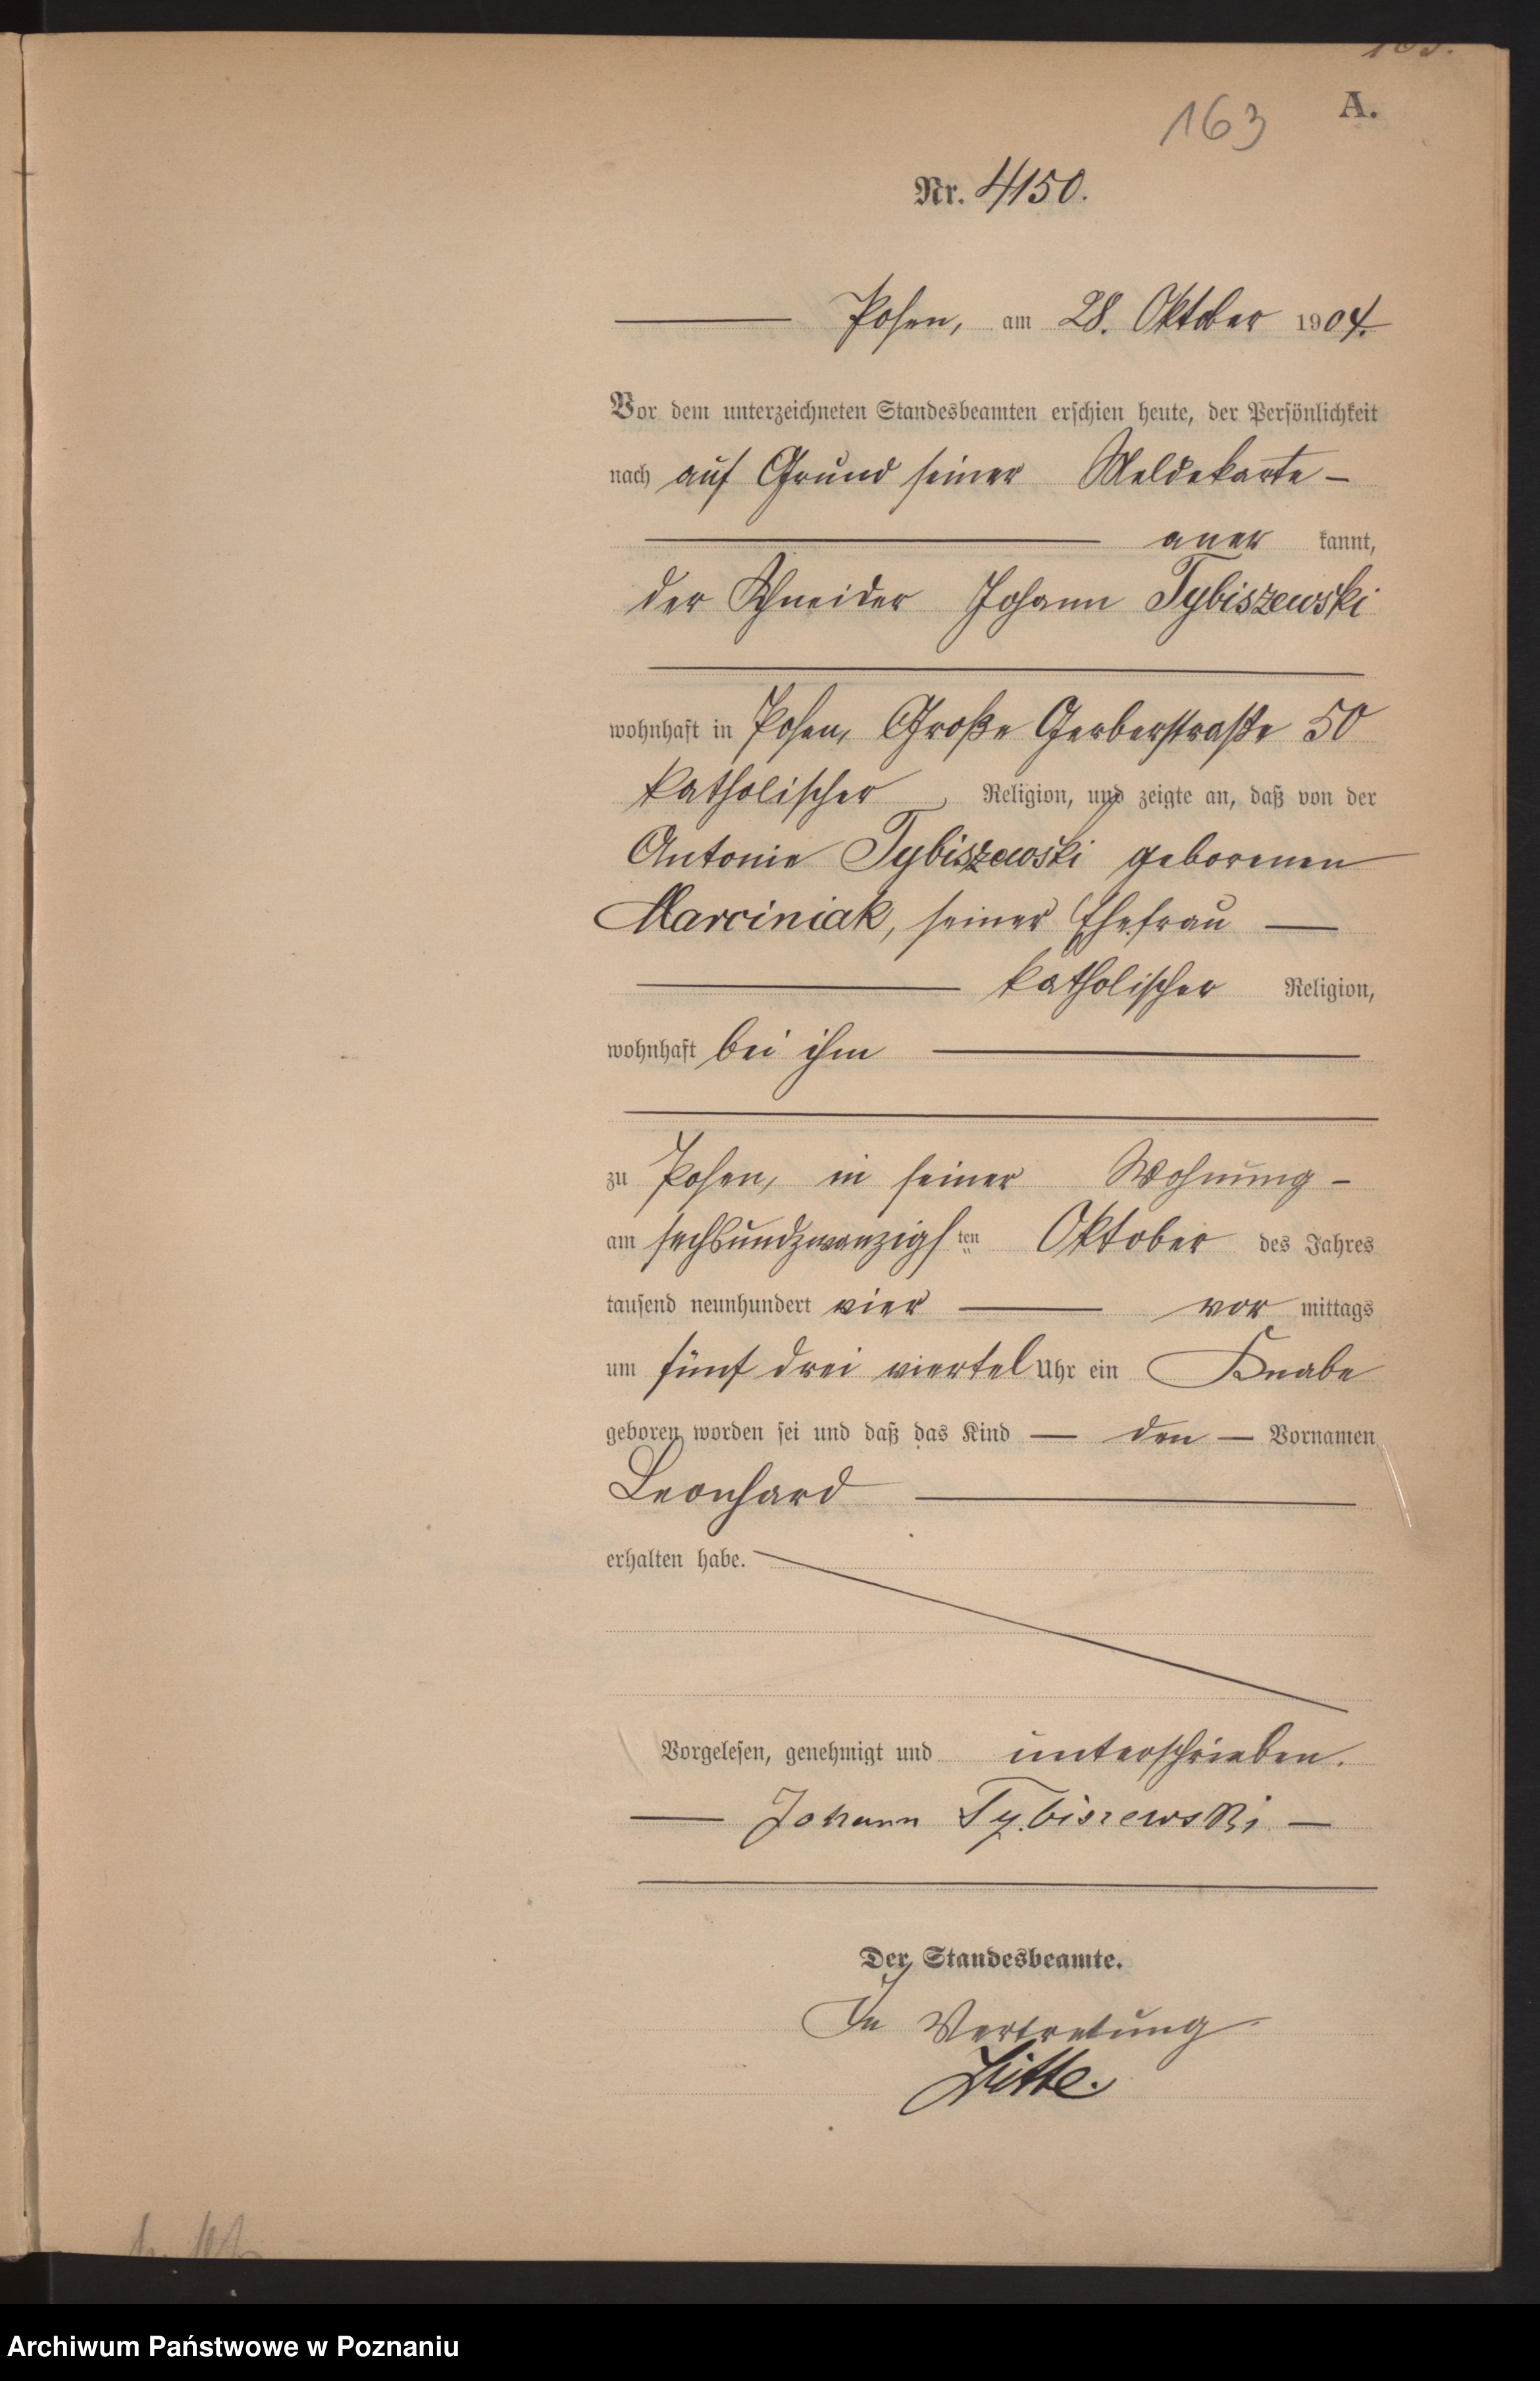 163
A.
Nr. 4150.
Posen, am 28. Oktober 1904.
Vor dem unterzeichneten Standesbeamten erschien heute, der Persönlichkeit
nach auf Grund seiner Meldekarte –
aner kannt,
der Schneider Johann Tybiszewski
wohnhaft in Posen, Große Gerberstraße 50
katholischer Religion, und zeigte an, daß von der
Antonie Tybiszewski geborenen
Marciniak, seiner Ehefrau —
katholischer Religion,
wohnhaft bei ihm
zu Posen, in seiner Wohnung –
am sechsundzwanzigsten Oktober des Jahres
tausend neunhundert vier — vor mittags
um fünf drei viertel Uhr ein Knabe
geboren worden sei und daß das Kind — den — Vornamen
Leonhard
erhalten habe.
Vorgelesen, genehmigt und unterschrieben.
— Johann Tybiszewski —
Der Standesbeamte.
In Vertretung
Archiwum Państwowe w Poznaniu